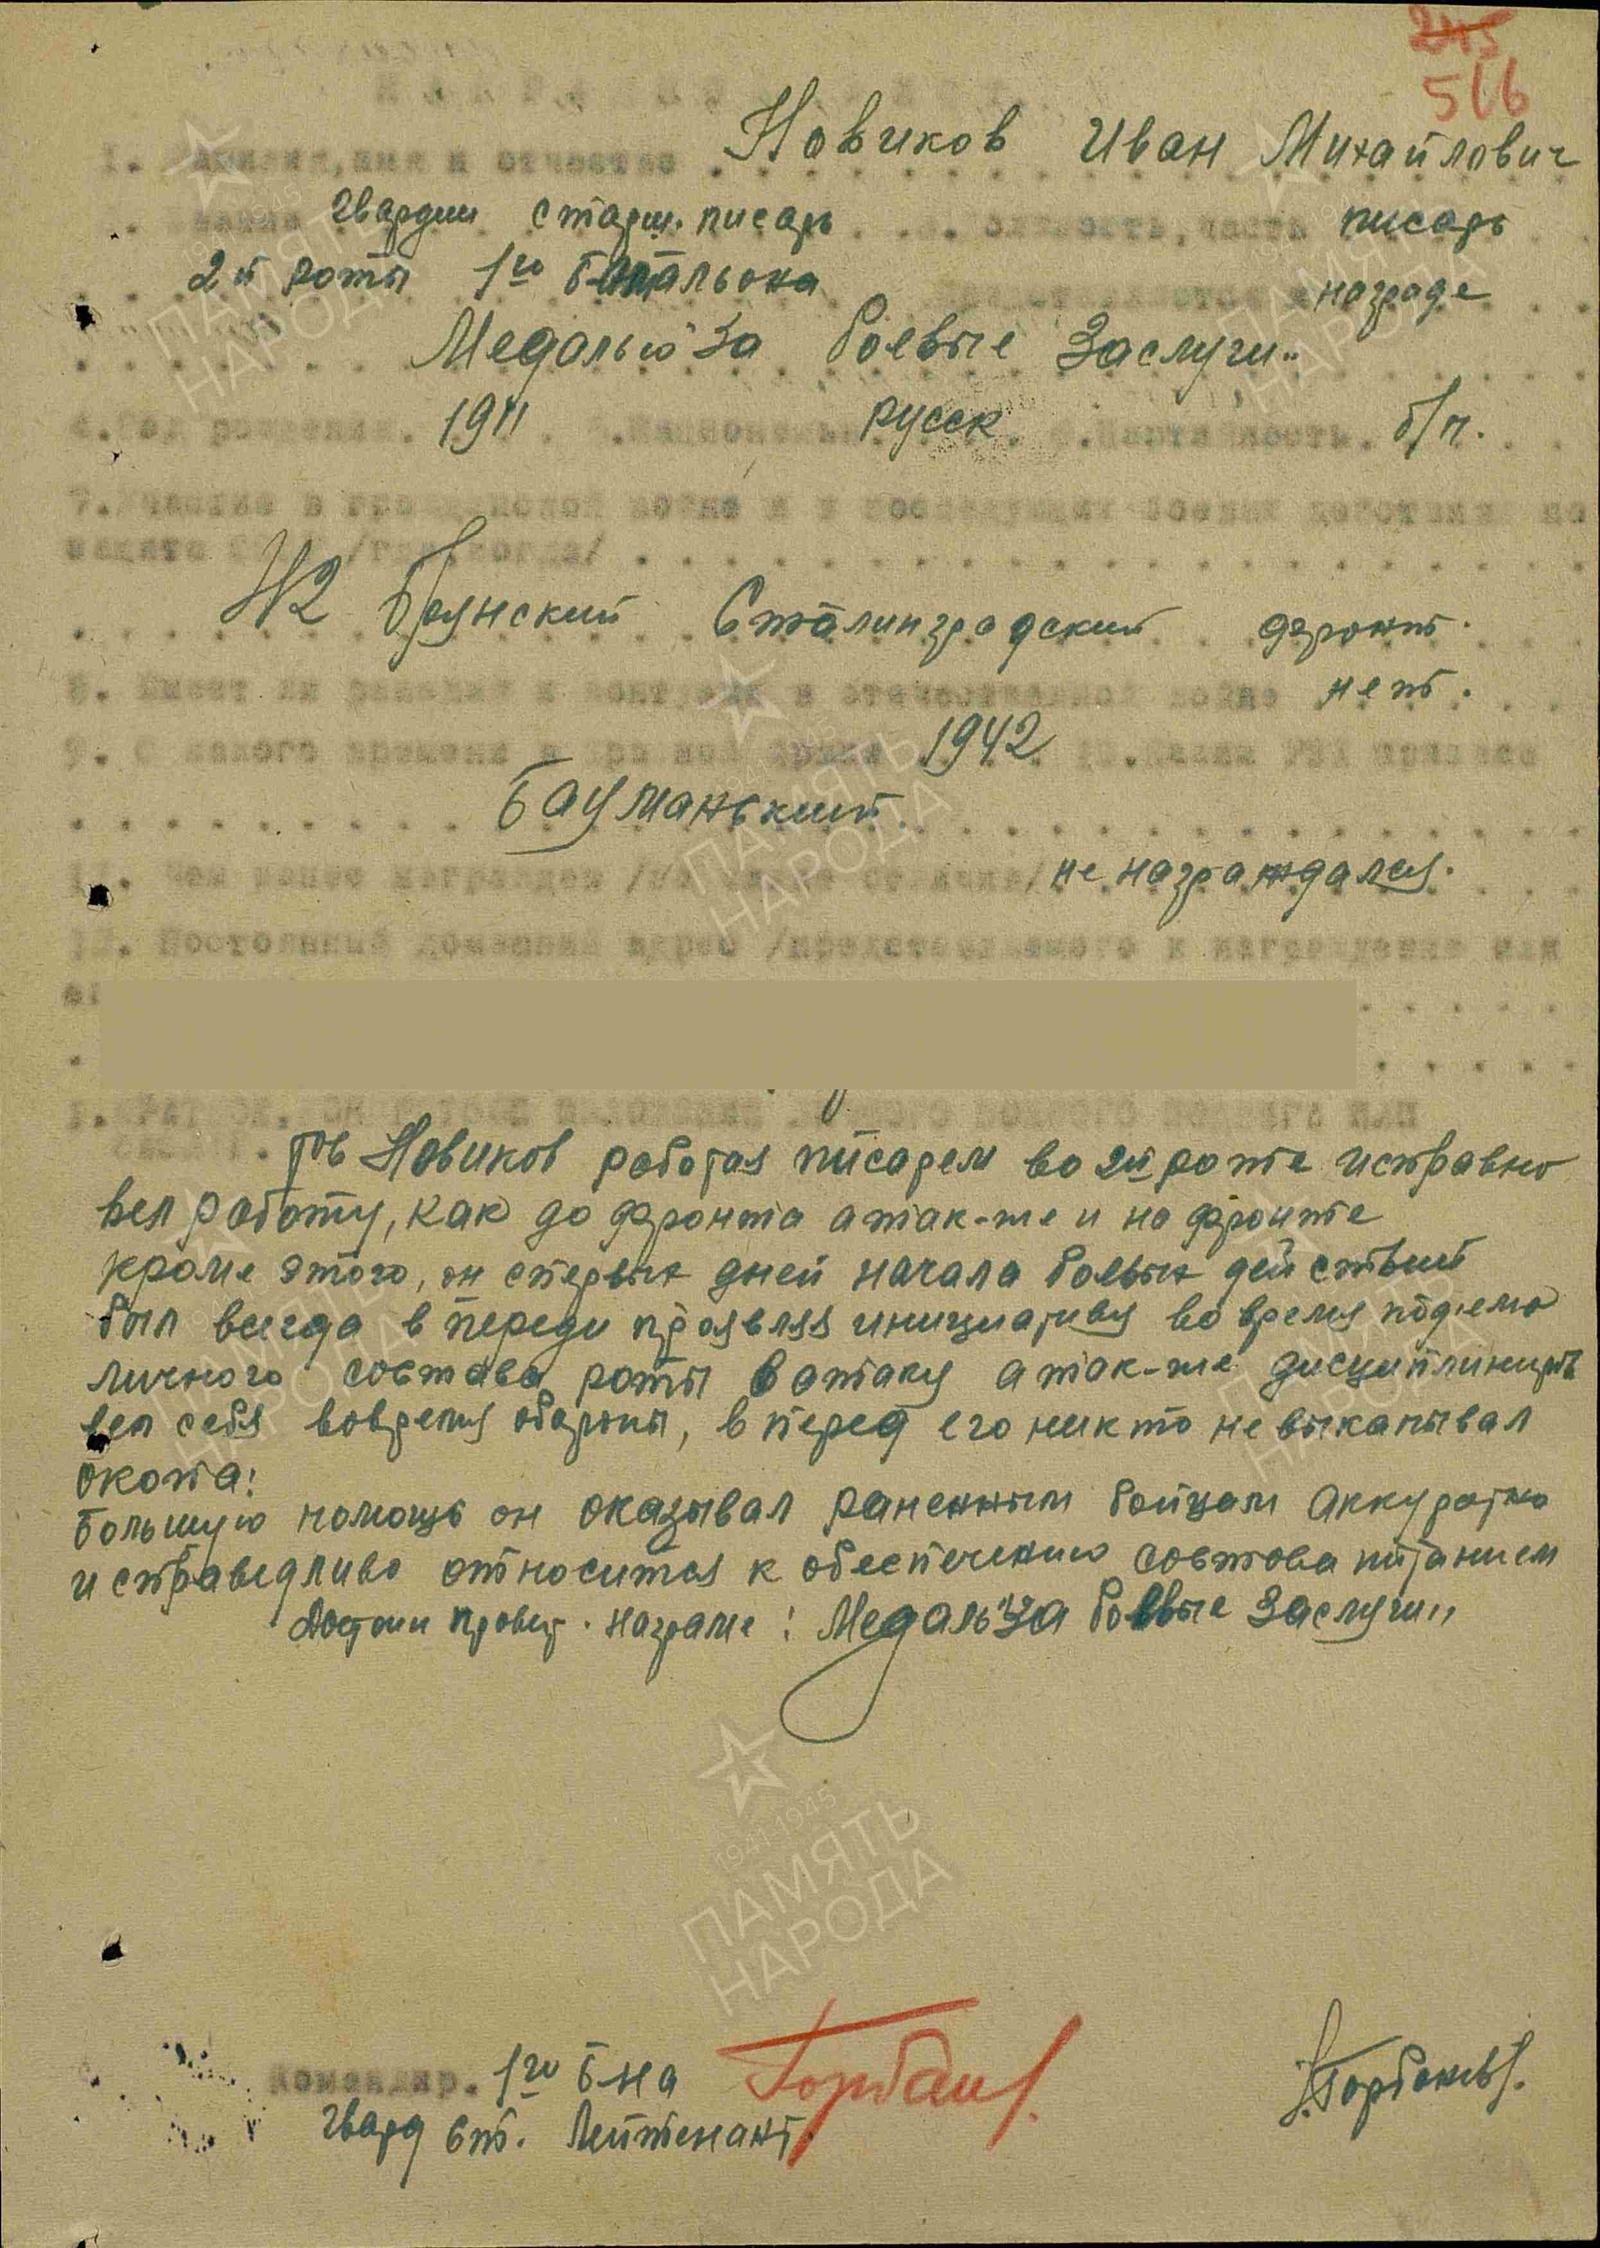 245
566
Новиков Иван Михайлович
1. Фамилия, имя и отчество
звание гвардии старш. писарь часть писарь
2й роты 1го батальона награде
Медалью "За боевые заслуги"
4. Год рождения. 1911 . Национальн. русск . Партийность. б/п.
7. Участие в гражданской войне и в последующих боевых действиях по
защите /где, когда/
42 Брянский Сталинградский фронт.
8. Имеет ли ранения и контузии в отечественной войне нет.
9. С какого времени в Красной Армии 1942 10. Каким РВК призван
Бауманский
11. Чем ранее награжден не награждался.
12. Постоянный домашний адрес /представляемого к награждению или
тов Новиков работая писарем во 2й роте исправно
вел работу, как до фронта а так-же и на фронте
кроме этого, он спервых дней начала боевых действий
был всегда в переди проявляя инициативу во время под'ема
личного состава роты в атаку а так-же дисциплинир
вел себя вовремя обороны, в перед его никто не выкапывал
окопа!
Большую помощь он оказывал раненным бойцам Аккуратно
и справедливо относится к обеспечению состава питанием
Достоин правит. награде: Медаль "За боевые заслуги"
Командир. 1го б-на
гвард ст. Лейтенант
ПАМЯТЬ
НАРОДА
1941-1945